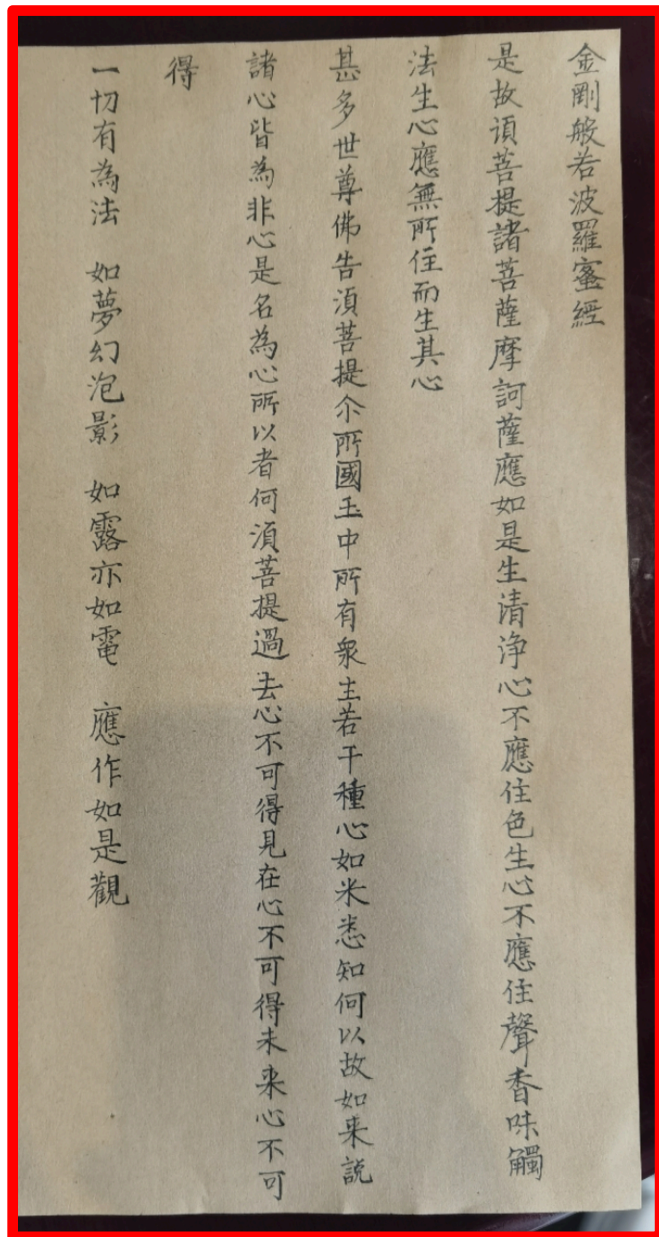 金剛般若波羅蜜經
是故須菩提諸菩薩摩訶薩應如是生清淨心不應住色生心不應住聲香味觸
法生心應無所住而生其心
甚多世尊佛告須菩提尒所國王中所有衆生若干種心如米悉知何以故如来説
諸心皆為非心是名為心所以者何須菩提過去心不可得見在心不可得未来心不可
得
一切有為法　如夢幻泡影　如露亦如電　應作如是觀